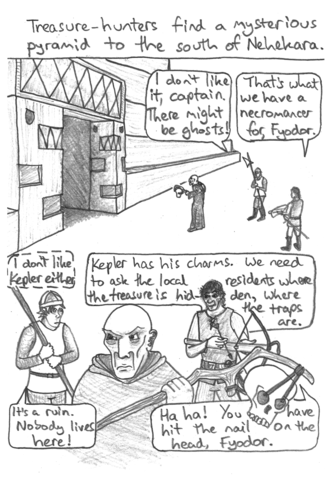 Treasure-hunters find a mysterious
pyramid to the south of Nehekara.
I don't like
it, captain.
There might
be ghosts!
That's what
we have a
necromancer
for, Fyodor.
I don't like
Kepler either
Kepler has his charms. We need
to ask the local residents where
the treasure is hidden, where
the traps
are.
It's a ruin.
Nobody lives
here!
Ha ha! You have
hit the nail on the
head, Fyodor.